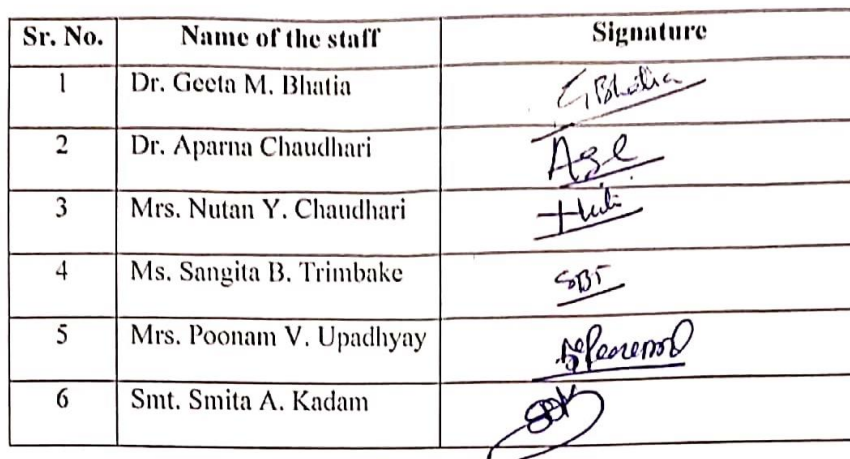 Sr. No. Name of the staff Signature
1 Dr. Geeta M. Bhatia GBhatia
2 Dr. Aparna Chaudhari
3 Mrs. Nutan Y. Chaudhari
4 Ms. Sangita B. Trimbake SBT
5 Mrs. Poonam V. Upadhyay
6 Smt. Smita A. Kadam